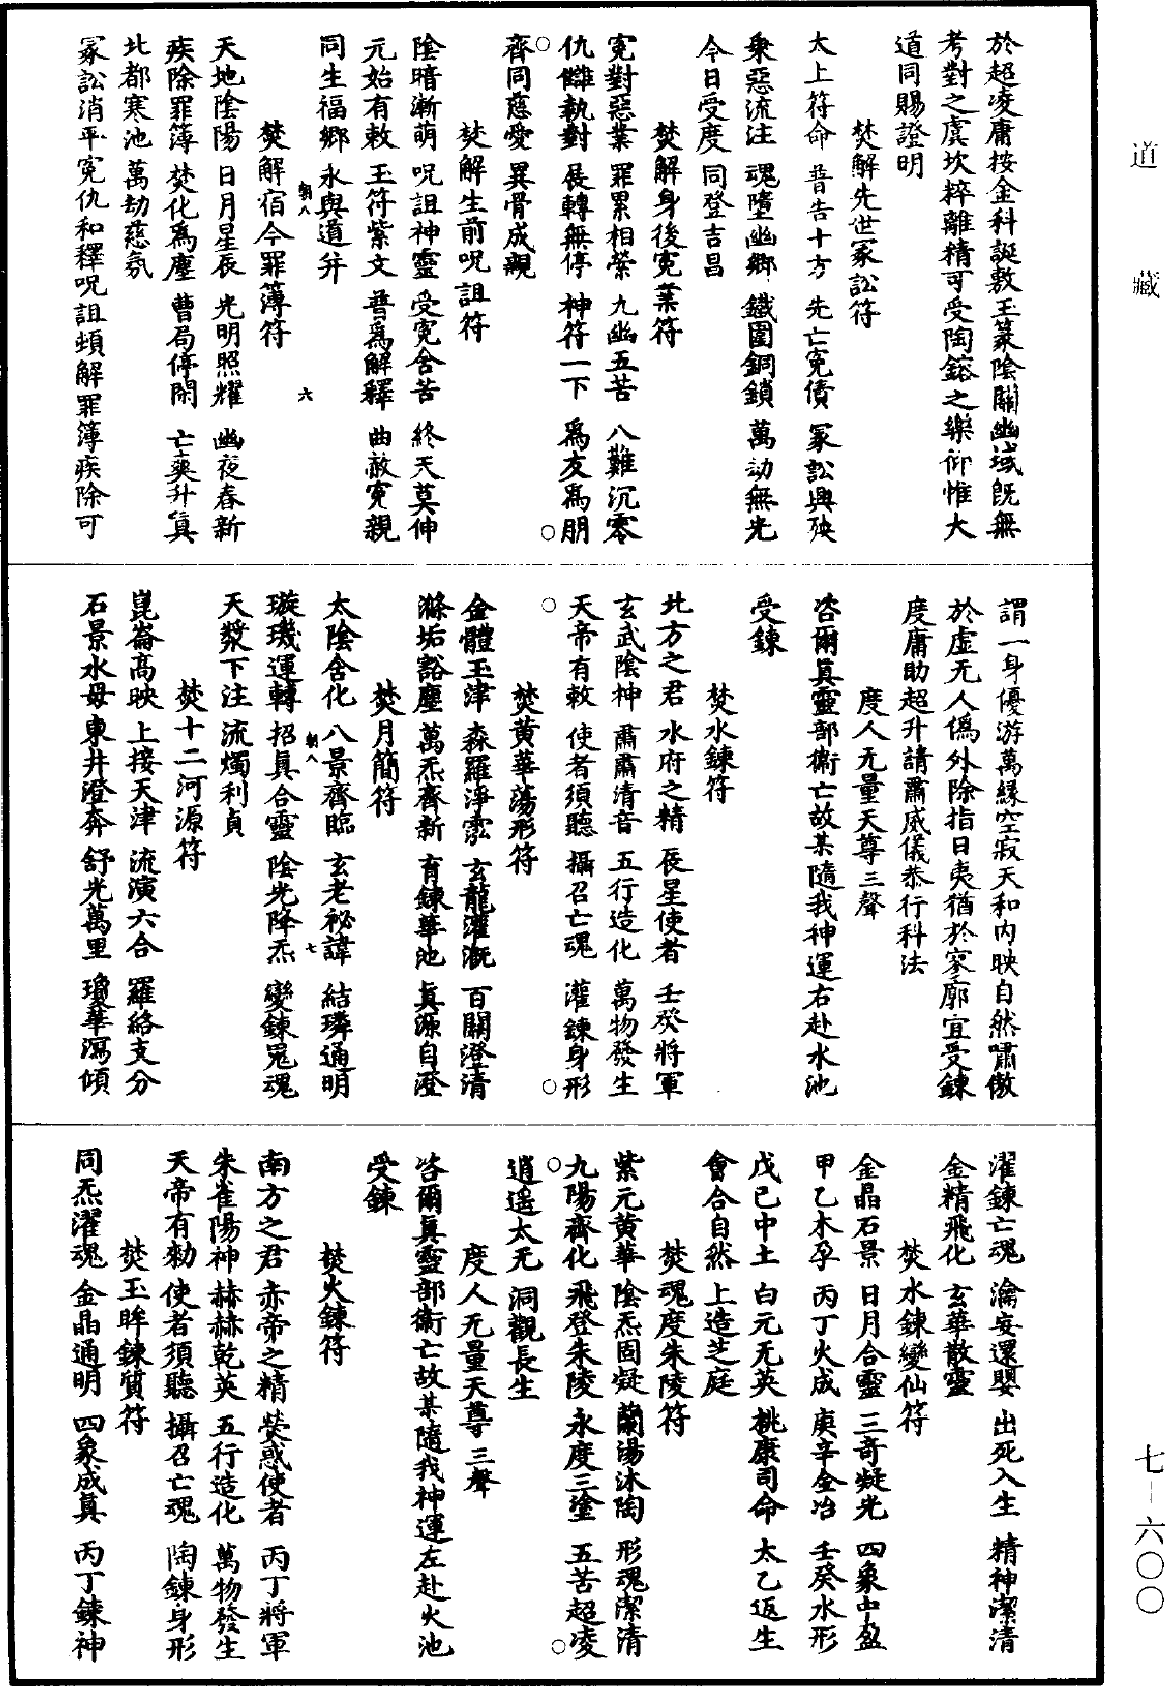 道藏
於超凌庸按金科誕敷玉篆陰關幽域旣無
考對之虞坎粹離精可受陶鎔之樂仰惟大
道同賜證明
焚解先世冢訟符
太上符命 普告十方 先亡寃債 冢訟興殃
乘惡流注 魂墮幽鄉 鐵圍銅鎖 萬劫無光
今日受度 同登吉昌
焚解身後寃業符
寃對惡業 罪累相縈 九幽五苦 八難沉零
仇讎執對 展轉無停 神符一下 爲友爲朋
齊同慈愛 異骨成親
焚解生前呪詛符
陰暗漸萌 呪詛神靈 受寃舍苦 終天莫伸
元始有敕 玉符紫文 普爲解釋 曲赦寃親
同生福鄉 永與道并
朝八 六
焚解宿今罪簿符
天地陰陽 日月星辰 光明照耀 幽夜春新
疾除罪簿 焚化爲塵 曹局停閑 亡爽升眞
北都寒池 萬劫慈氛
冢訟消平寃仇和釋呪詛頓解罪簿疾除可
謂一身優游萬緣空寂天和內映自然嘯傲
於虛无人僞外除指日夷猶於寥廓宜受鍊
度庸助超升請肅威儀恭行科法
度人无量天尊三聲
咨爾眞靈部衞亡故某隨我神運右赴水池
受鍊
焚水鍊符
北方之君 水府之精 辰星使者 壬癸將軍
玄武陰神 肅肅清音 五行造化 萬物發生
天帝有敕 使者須聽 攝召亡魂 灌鍊身形
焚黃華蕩形符
金體玉津 森羅淨泓 玄龍灌溉 百關澄清
滌垢豁塵 萬炁齊新 育鍊華池 眞源自澄
焚月簡符
太陰含化 八景齊臨 玄老祕諱 結璘通明
朝八 七
璇璣運轉 招眞合靈 陰光降炁 變鍊冤魂
天漿下注 流燭利貞
焚十二河源符
崑崙高映 上接天津 流演六合 羅絡支分
石景水母 東井澄奔 舒光萬里 瓊華瀉傾
濯鍊亡魂 瀹安還嬰 出死入生 精神潔清
金精飛化 玄華散靈
焚水鍊變仙符
金晶石景 日月合靈 三奇凝光 四象中盈
甲乙木孕 丙丁火成 庚辛金冶 壬癸水形
戊己中土 白元无英 桃康司命 太乙返生
會合自然 上造芝庭
焚魂度朱陵符
紫元黃華 陰炁固凝 蘭湯沐陶 形魂潔清
九陽齊化 飛登朱陵 永度三塗 五苦超凌
逍遥太无 洞觀長生
度人无量天尊三聲
咨爾眞靈部衞亡故某隨我神運左赴火池
受鍊
焚火鍊符
南方之君 赤帝之精 熒惑使者 丙丁將軍
朱雀陽神 赫赫乾英 五行造化 萬物發生
天帝有勑 使者須聽 攝召亡魂 陶鍊身形
焚玉眸鍊質符
同炁濯魂 金晶通明 四象成眞 丙丁鍊神
七-六〇〇